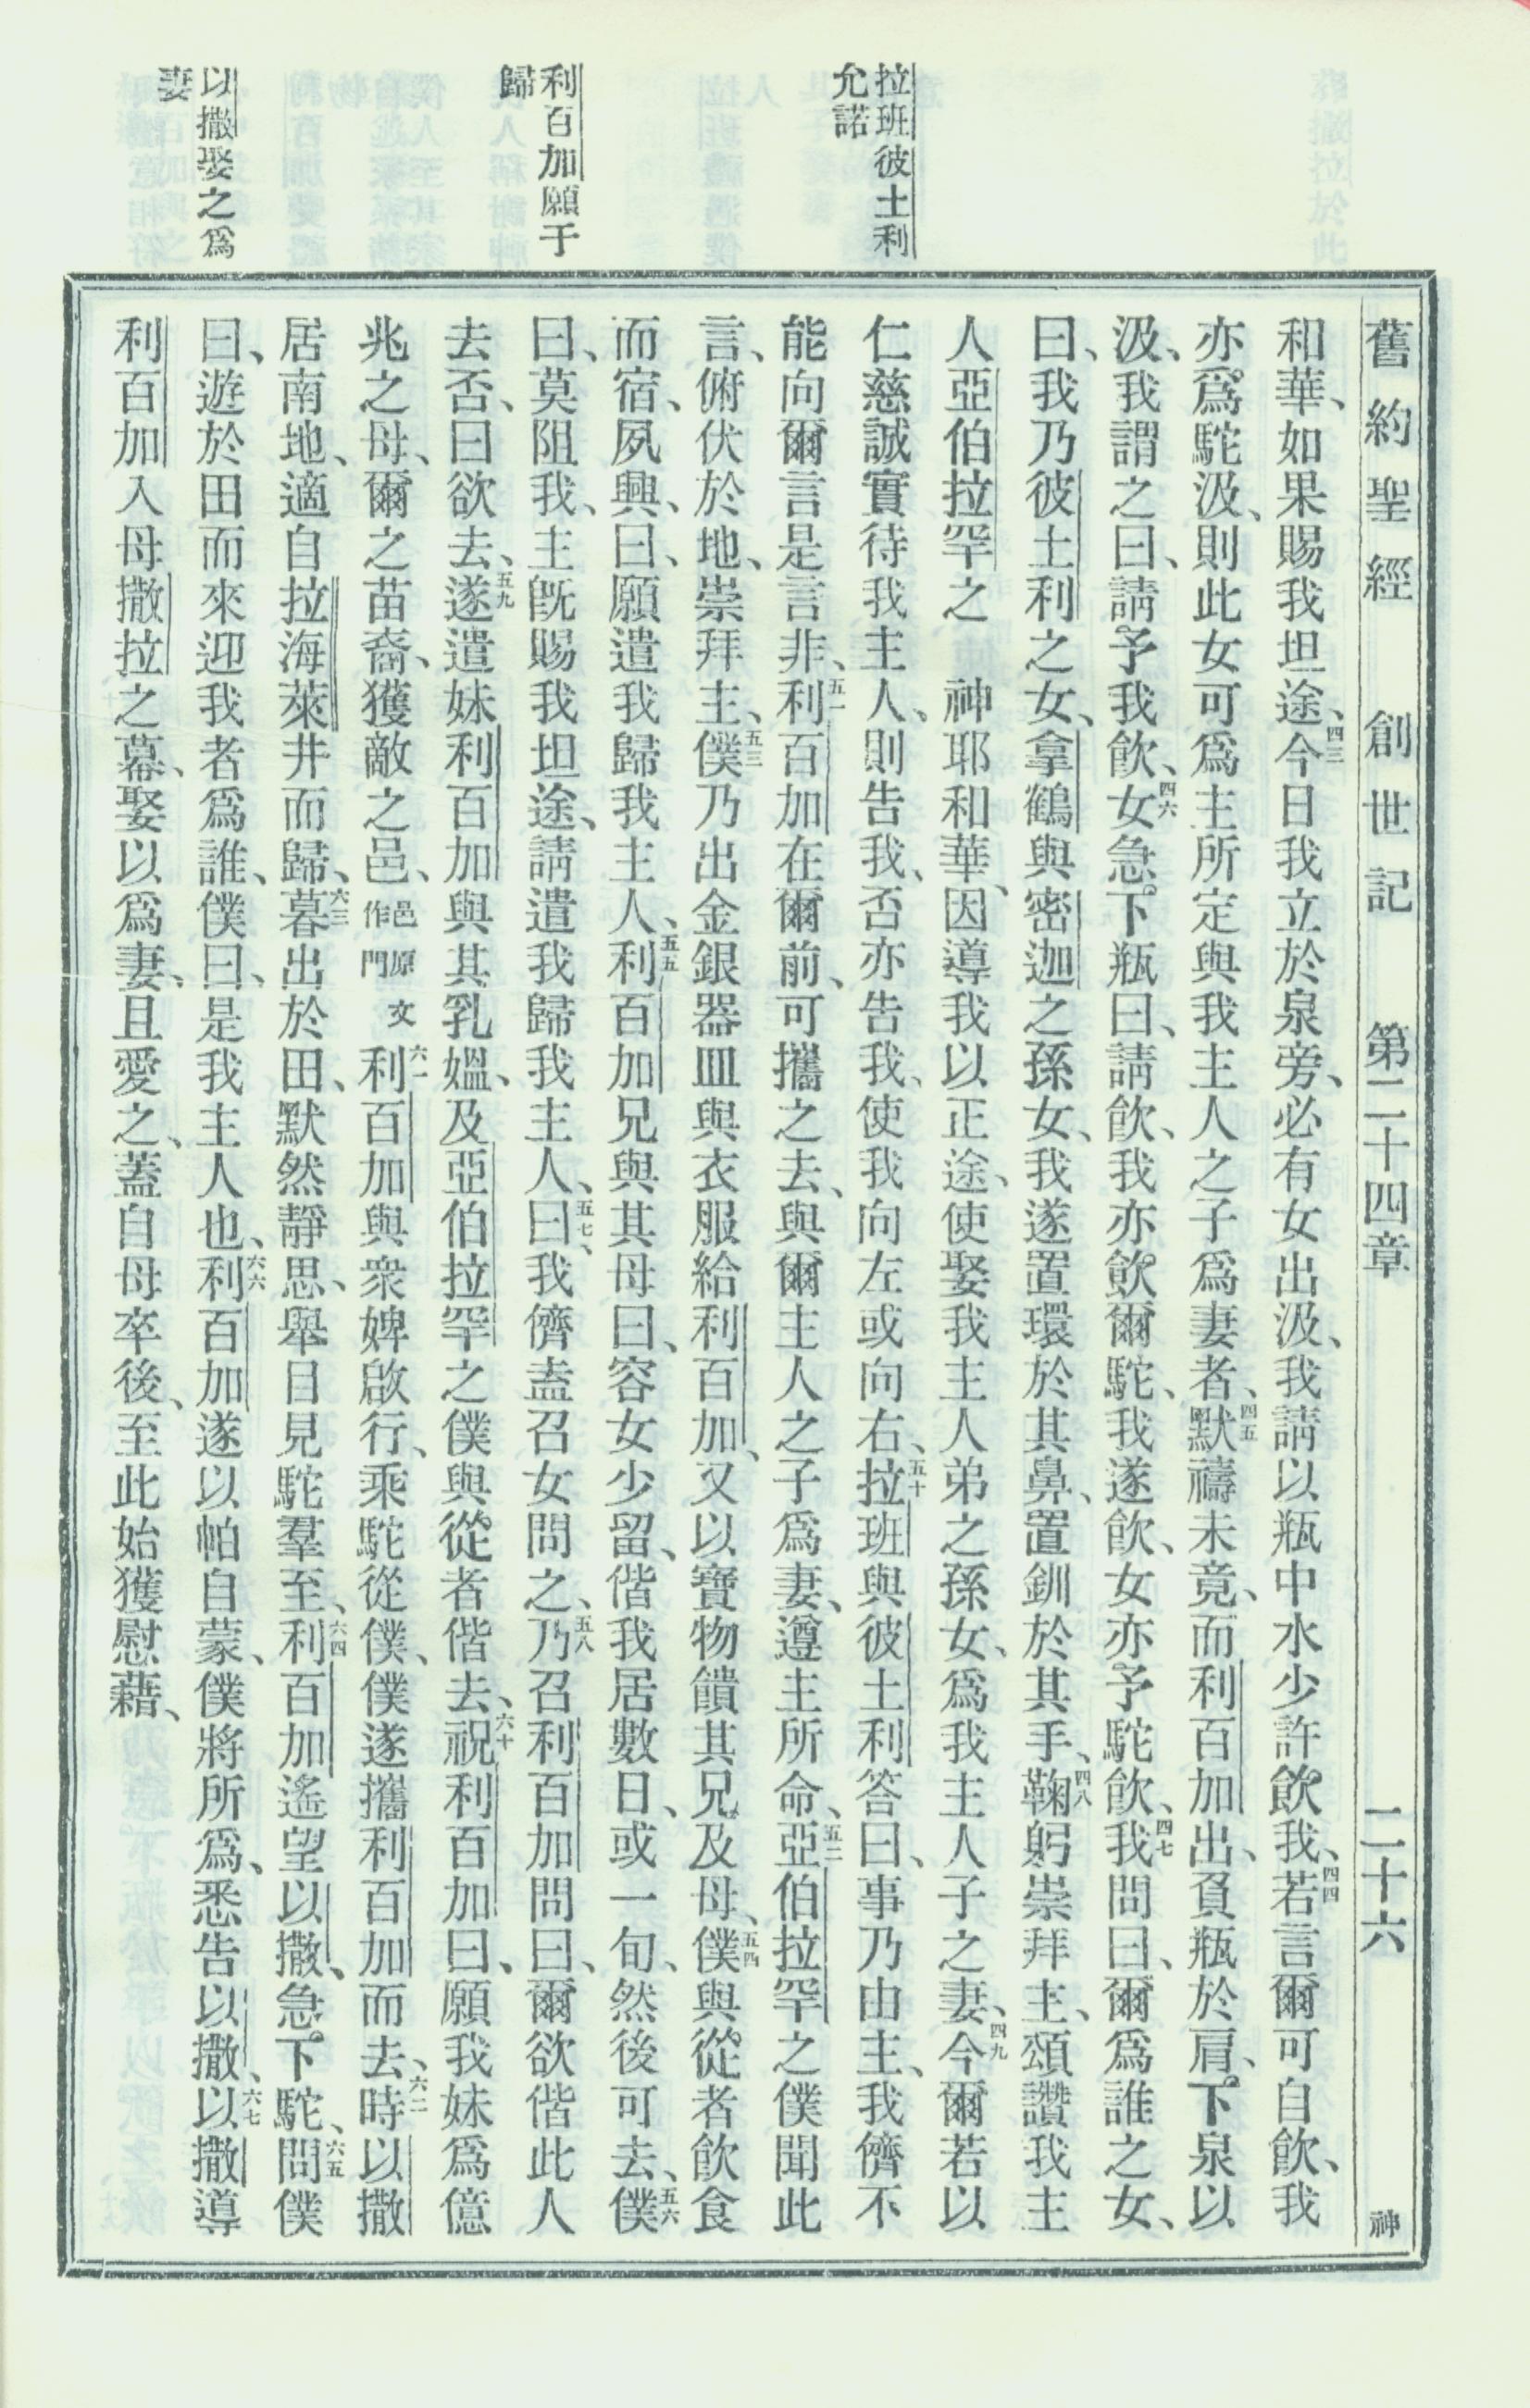 舊約聖經 創世記 第二十四章 二十六 神
拉班彼土利
允諾
利百加願于
歸
以撒娶之爲
妻
和華、如果賜我坦途、四三今日我立於泉旁、必有女出汲、我請以瓶中水少許飲我、四四若言爾可自飲、我
亦爲駝汲、則此女可爲主所定與我主人之子爲妻者、四五默禱未竟、而利百加出、負瓶於肩、下泉以
汲、我謂之曰、請予我飲、四六女急下瓶曰、請飲、我亦飲爾駝、我遂飲、女亦予駝飲、四七我問曰、爾爲誰之女、
曰、我乃彼土利之女、拿鶴與密迦之孫女、我遂置環於其鼻、置釧於其手、四八鞠躬崇拜主、頌讚我主
人亞伯拉罕之 神耶和華、因導我以正途、使娶我主人弟之孫女、爲我主人子之妻、四九今爾若以
仁慈誠實待我主人、則告我、否亦告我、使我向左或向右、五十拉班與彼土利答曰、事乃由主、我儕不
能向爾言是言非、五一利百加在爾前、可攜之去、與爾主人之子爲妻、遵主所命、五二亞伯拉罕之僕聞此
言、俯伏於地、崇拜主、五三僕乃出金銀器皿與衣服給利百加、又以寶物饋其兄及母、五四僕與從者飲食
而宿、夙興、曰、願遣我歸我主人、五五利百加兄與其母曰、容女少留、偕我居數日、或一旬、然後可去、五六僕
曰、莫阻我、主旣賜我坦途、請遣我歸我主人、五七曰、我儕盍召女問之、五八乃召利百加問曰、爾欲偕此人
去否、曰欲去、五九遂遣妹利百加與其乳媼、及亞伯拉罕之僕與從者偕去、六十祝利百加曰、願我妹爲億
兆之母、爾之苗裔、獲敵之邑、邑原文作門 六一利百加與衆婢啟行、乘駝從僕、僕遂攜利百加而去、六二時以撒
居南地、適自拉海萊井而歸、六三暮出於田、默然靜思、舉目見駝羣至、六四利百加遙望以撒、急下駝、六五問僕
曰、遊於田而來迎我者爲誰、僕曰、是我主人也、六六利百加遂以帕自蒙、僕將所爲、悉告以撒、六七以撒導
利百加入母撒拉之幕、娶以爲妻、且愛之、蓋自母卒後、至此始獲慰藉、